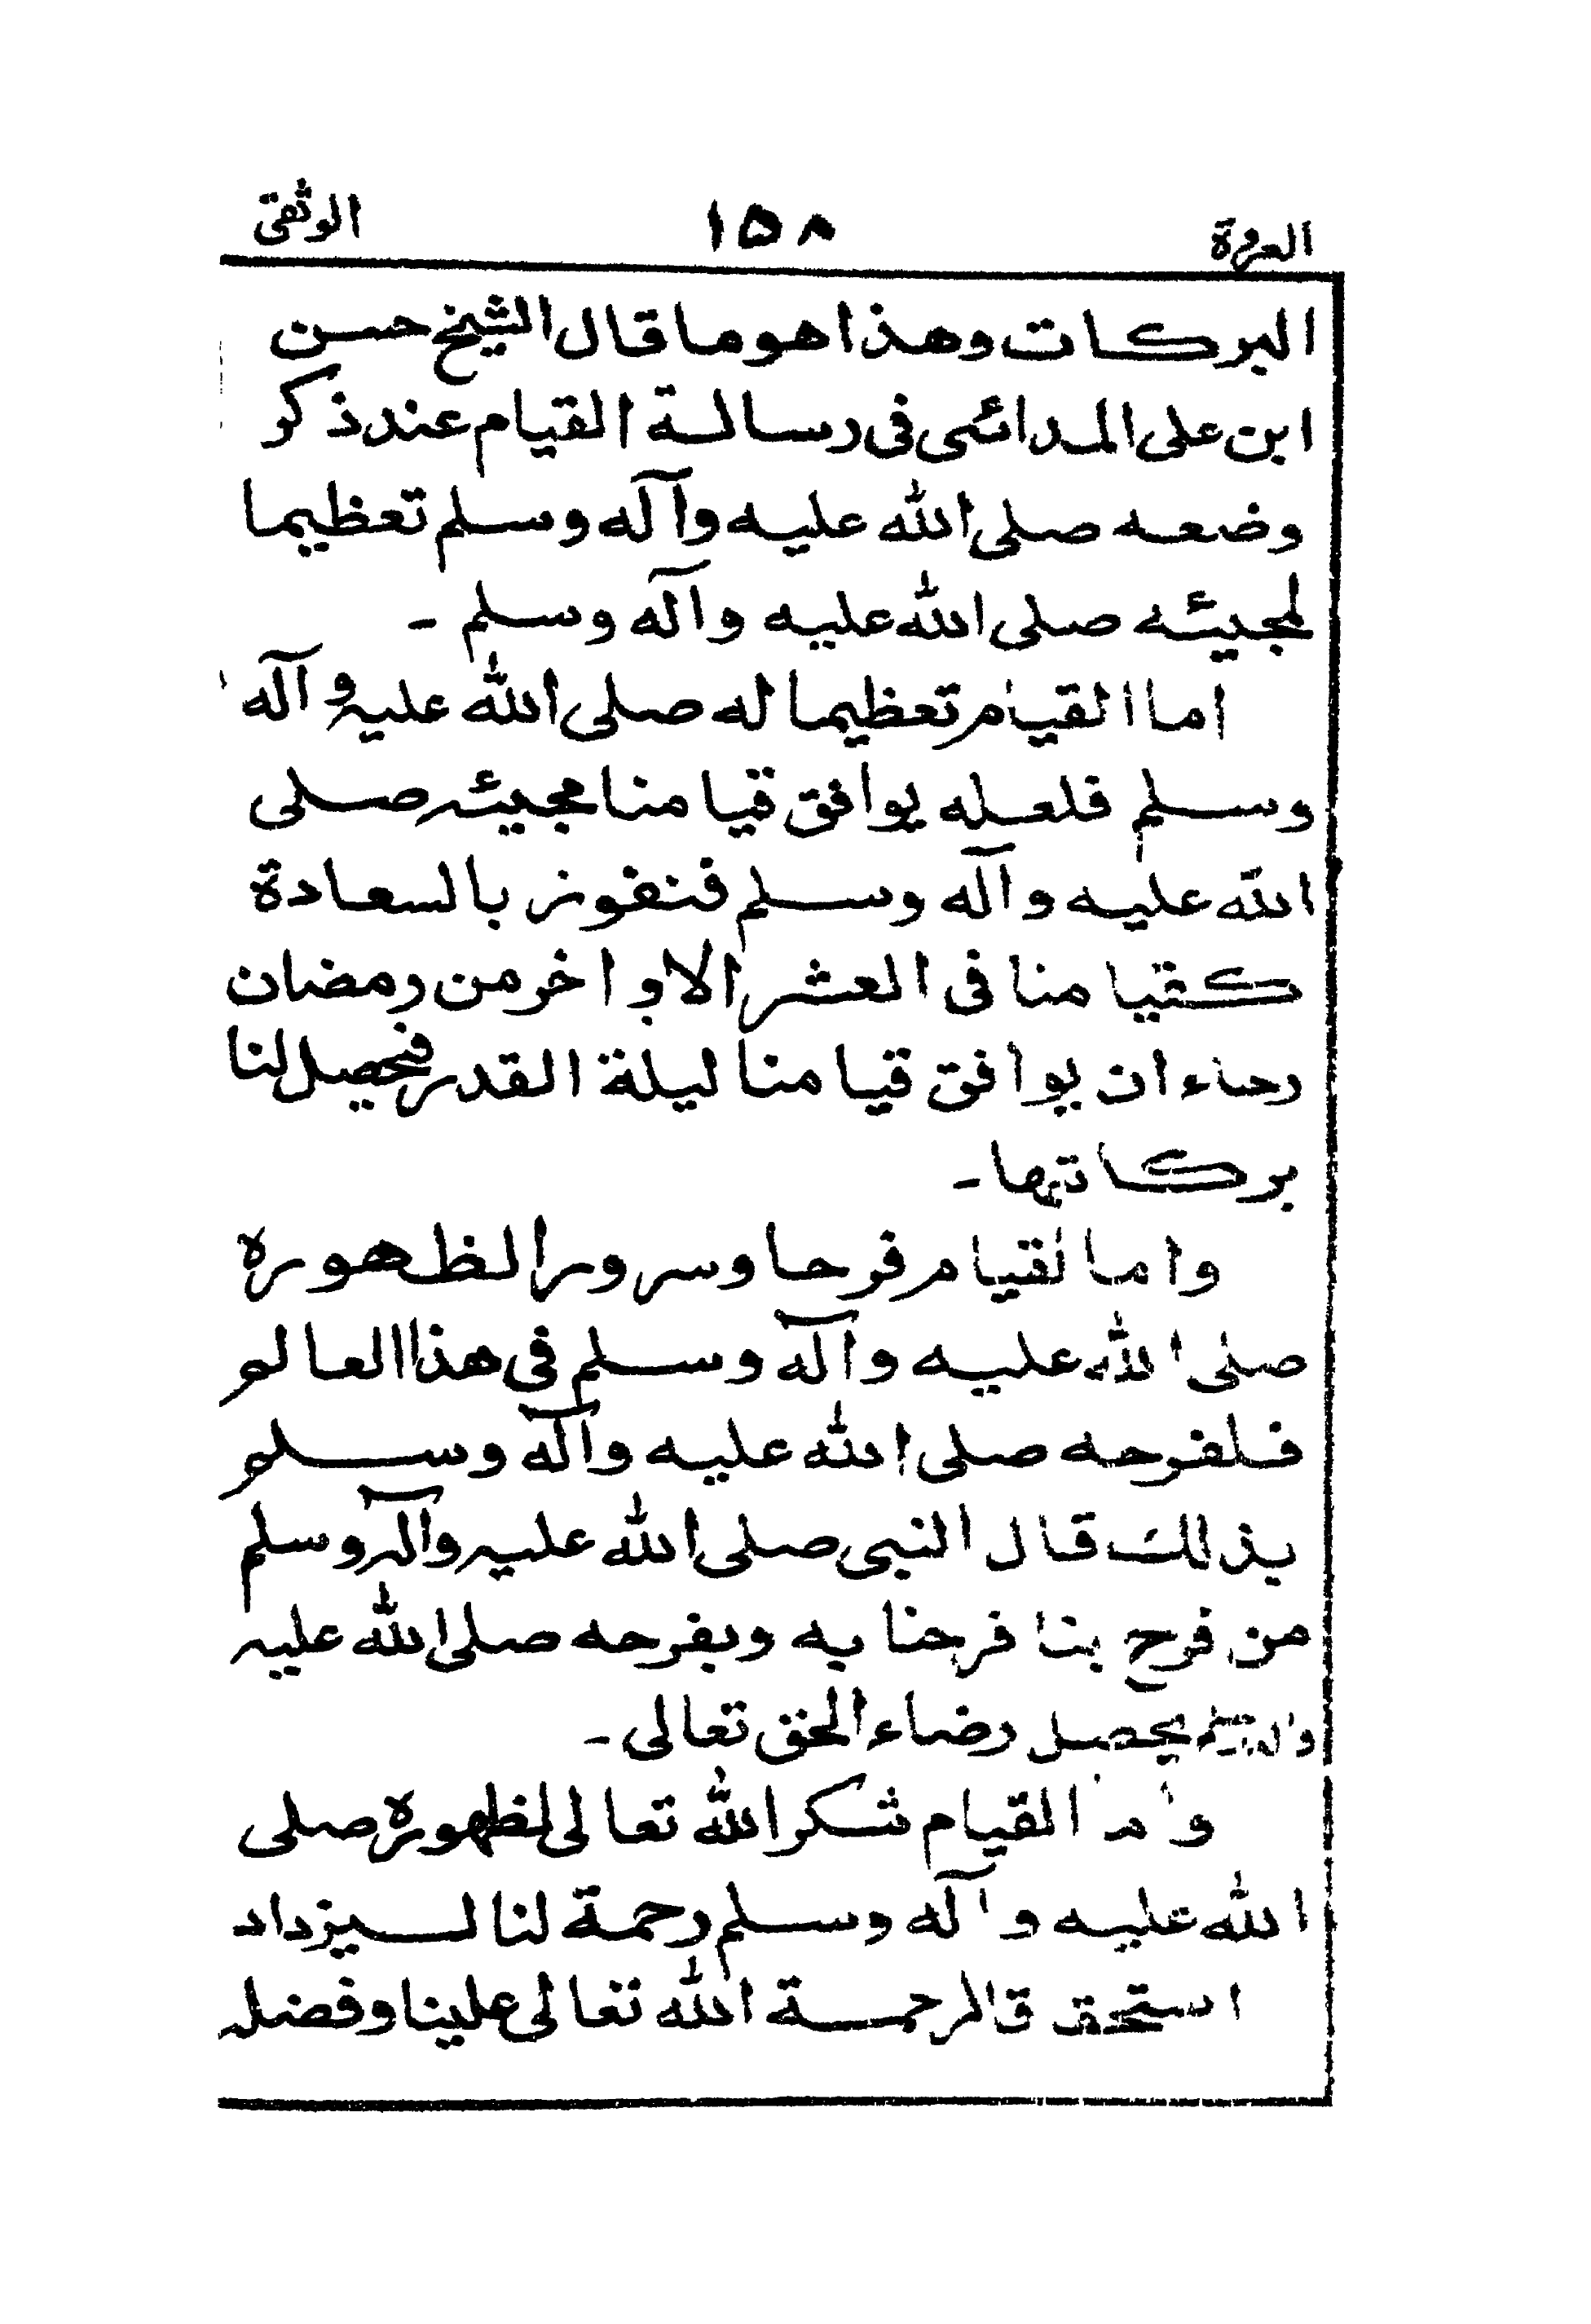 العروة ١٥٨ الوثقى
البركات وهذا هو ما قال الشيخ حسن
ابن على المدائى فى رسالة القيام عند ذكر
وضعه صلى الله عليه وآله وسلم تعظيما
لمجيئه صلى الله عليه وآله وسلم -
اما القيام تعظيما له صلى الله عليه وآله
وسلم فلعله يوافق قيامنا مجيئه صلى
الله عليه وآله وسلم فنفوز بالسعادة
كقيامنا فى العشر الاواخر من رمضان
رحاء ان يوافق قيامنا ليلة القدر فيحصل لنا
بركاتها -
واما القيام فرحا وسرورا لظهوره
صلى الله عليه وآله وسلم فى هذا العالم
فلفرحه صلى الله عليه وآله وسلم
بذلك قال النبى صلى الله عليه وآله وسلم
من فرح بنا فرحنا به وبفرحه صلى الله عليه
وآله وسلم يحصل رضاء الحق تعالى -
واما القيام شكرا لله تعالى لظهوره صلى
الله عليه وآله وسلم رحمة لنا ليزداد
استحقاقا لرحمة الله تعالى علينا وفضله